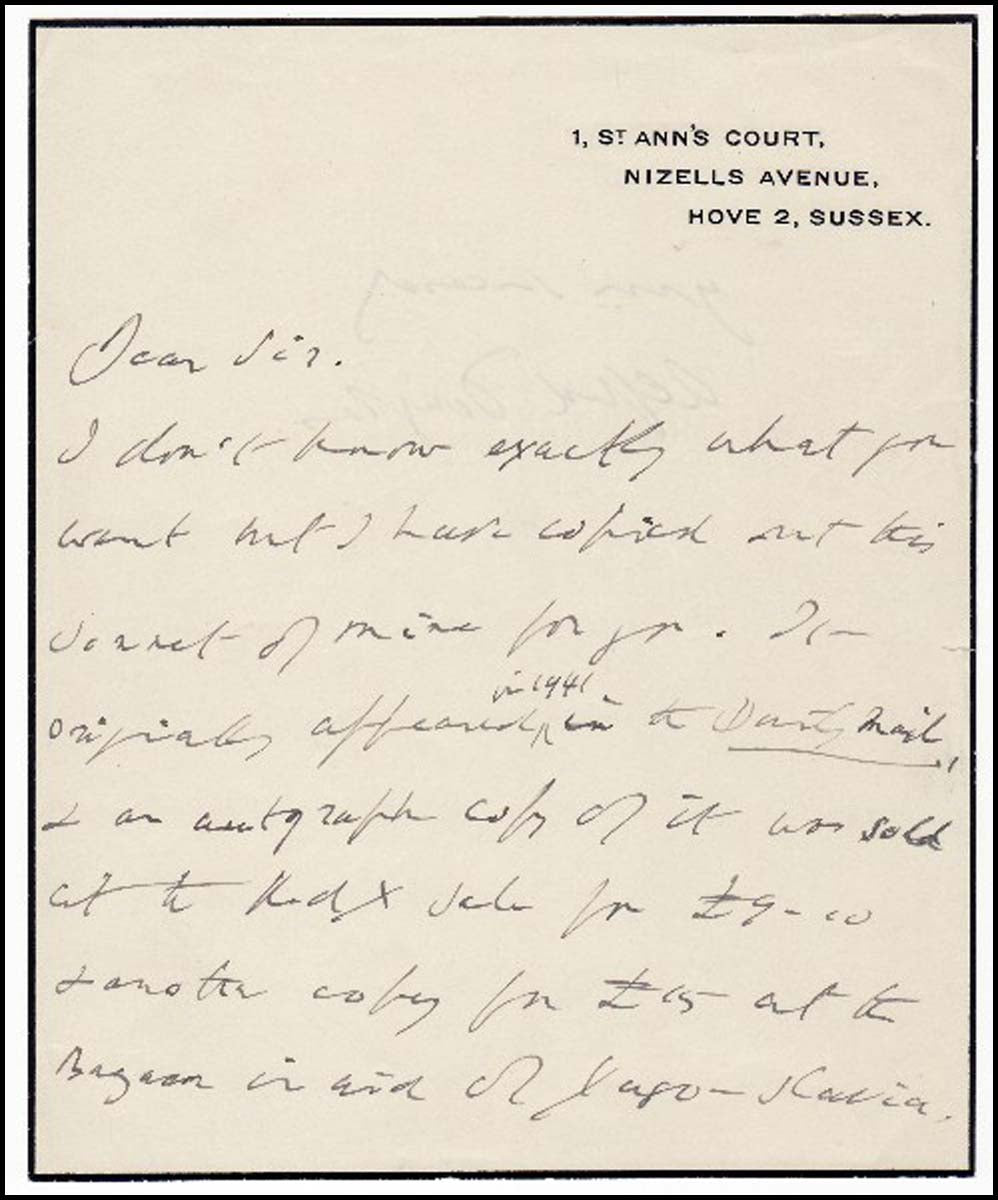 1, ST ANN'S COURT,
NIZELLS AVENUE,
HOVE 2, SUSSEX.
Dear Sir.
I don't know exactly what you
want but I have copied out this
Sonnet of mine for you. It
originally appeared in 1941 in the Daily Mail,
& an autograph copy of it was sold
at the Red X Sale for £9-10
& another copy for £15 at the
Bazaar in aid of Yugo-Slavia.
yours sincerely
Alfred Douglas.